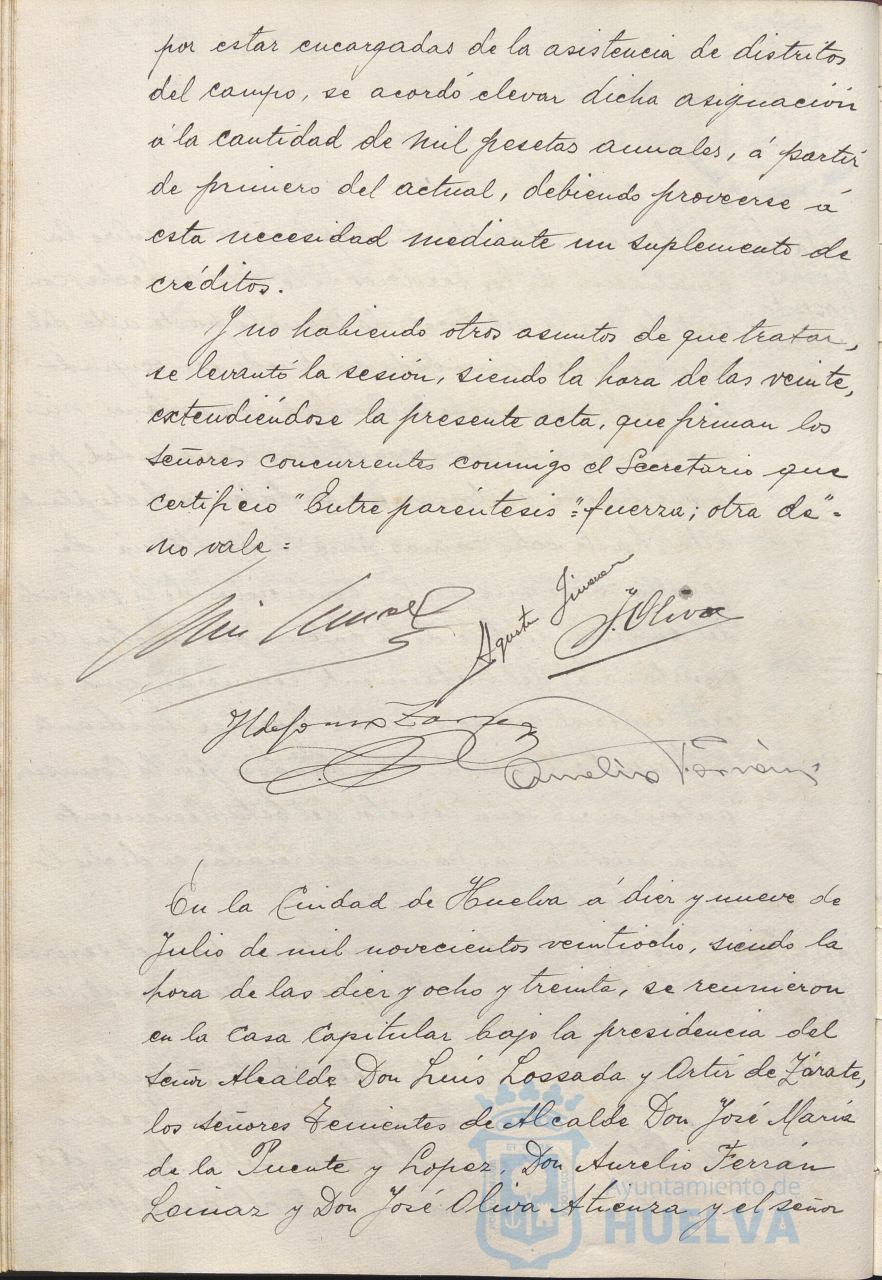 por estar encargadas de la asistencia de distritos
del campo, se acordó elevar dicha asignación
á la cantidad de mil pesetas anuales, á partir
de primero del actual, debiendo proveerse á
esta necesidad mediante un suplemento de
créditos.
Y no habiendo otros asuntos de que tratar,
se levantó la sesión, siendo la hora de las veinte,
extendiéndose la presente acta, que firman los
señores concurrentes conmigo el Secretario que
certifico "Entre paréntesis"=fuerza; otra de"=
no vale=
Agustín Jimenez
J. Oliva
Ildefonso
Aurelio Ferrán
En la Ciudad de Huelva á diez y nueve de
Julio de mil novecientos veintiocho, siendo la
hora de las diez y ocho y treinta, se reunieron
en la Casa Capitular bajo la presidencia del
señor Alcalde Don Luís Lossada y Ortíz de Zárate,
los señores Tenientes de Alcalde Don José María
de la Puente y Lopez, Don Aurelio Ferrán
Loinaz y Don José Oliva Atienza y el señor
Ayuntamiento de
HUELVA